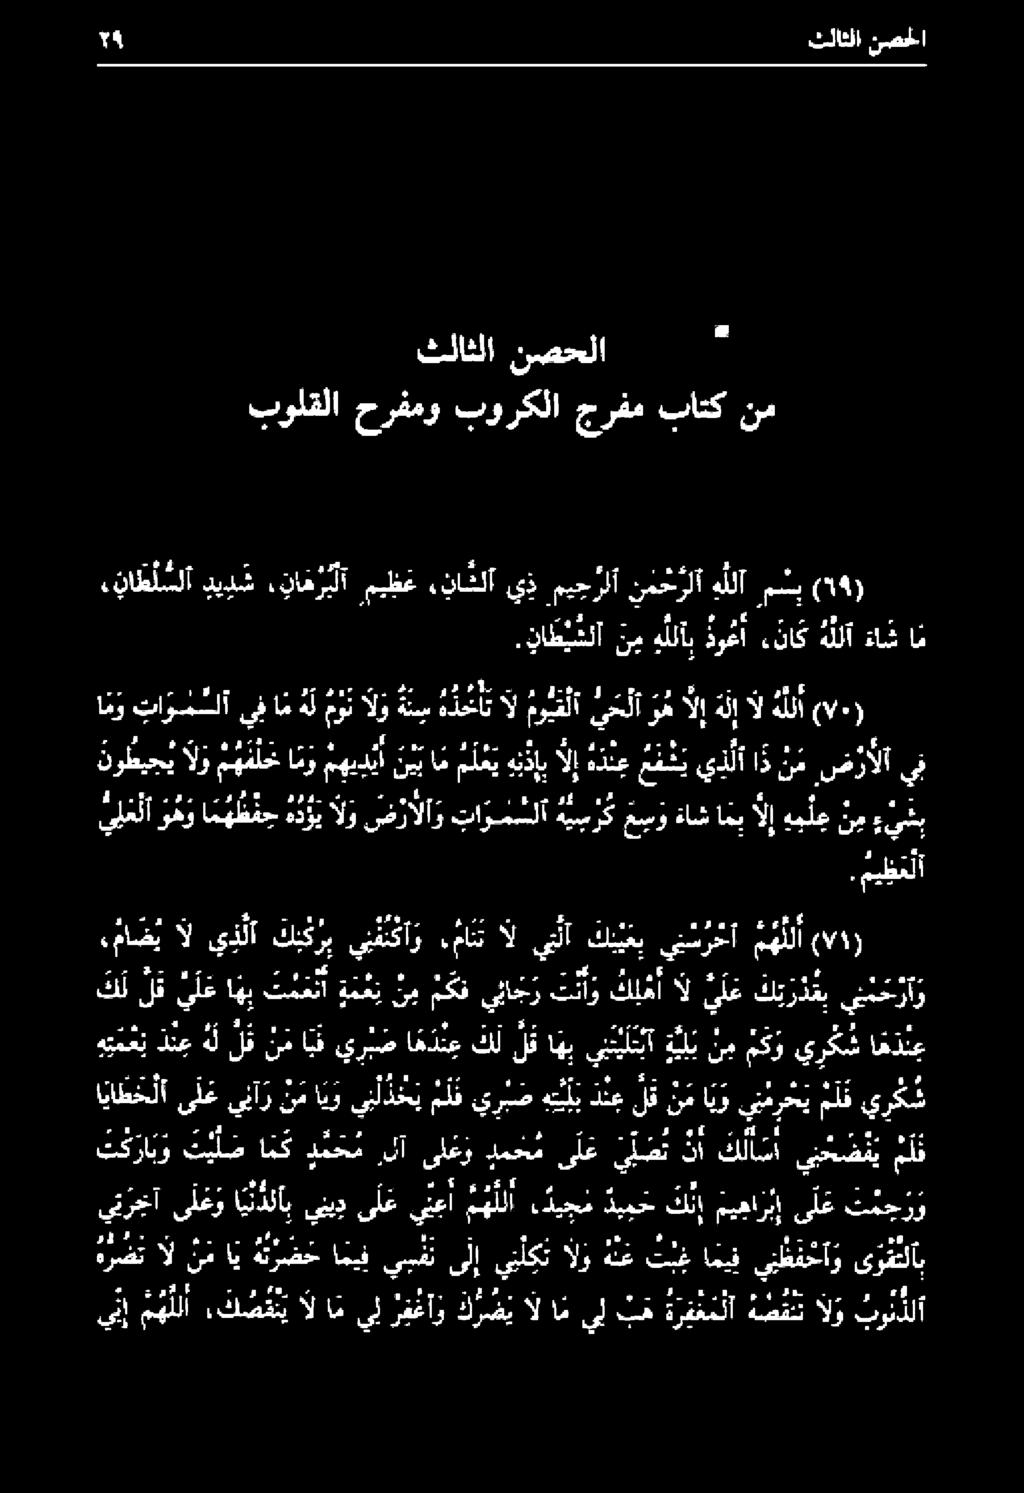 الحصن الثالث ٢٩
الحصن الثالث
من كتاب مفرج الكروب ومفرح القلوب
(٦٩) بِسْمِ ٱللَّهِ ٱلرَّحْمَنِ ٱلرَّحِيمِ ذِي ٱلشَّانِ، عَظِيمِ ٱلْبُرْهَانِ، شَدِيدِ ٱلسُّلْطَانِ،
مَا شَاءَ ٱللَّهُ كَانَ، أَعُوذُ بِٱللَّهِ مِنَ ٱلشَّيْطَانِ.
(٧٠) أَللَّهُ لَا إِلَهَ إِلَّا هُوَ ٱلْحَيُّ ٱلْقَيُّومُ لَا تَأْخُذُهُ سِنَةٌ وَلَا نَوْمٌ لَهُ مَا فِي ٱلسَّمَـوَاتِ وَمَا
فِي ٱلْأَرْضِ مَنْ ذَا ٱلَّذِي يَشْفَعُ عِنْدَهُ إِلَّا بِإِذْنِهِ يَعْلَمُ مَا بَيْنَ أَيْدِيهِمْ وَمَا خَلْفَهُمْ وَلَا يُحِيطُونَ
بِشَيْءٍ مِنْ عِلْمِهِ إِلَّا بِمَا شَاءَ وَسِعَ كُرْسِيُّهُ ٱلسَّمَـوَاتِ وَٱلْأَرْضَ وَلَا يَؤُدُهُ حِفْظُهُمَا وَهُوَ ٱلْعَلِيُّ
ٱلْعَظِيمُ.
(٧١) أَللَّهُمَّ ٱحْرُسْنِي بِعَيْنِكَ ٱلَّتِي لَا تَنَامُ، وَٱكْنُفْنِي بِرُكْنِكَ ٱلَّذِي لَا يُضَامُ،
وَٱرْحَمْنِي بِقُدْرَتِكَ عَلَيَّ لَا أَهْلِكُ وَأَنْتَ رَجَائِي فَكَمْ مِنْ نِعْمَةٍ أَنْعَمْتَ بِهَا عَلَيَّ قَلَّ لَكَ
عِنْدَهَا شُكْرِي وَكَمْ مِنْ بَلِيَّةٍ ٱبْتَلَيْتَنِي بِهَا قَلَّ لَكَ عِنْدَهَا صَبْرِي فَيَا مَنْ قَلَّ لَهُ عِنْدَ نِعْمَتِهِ
شُكْرِي فَلَمْ يَحْرِمْنِي وَيَا مَنْ قَلَّ عِنْدَ بَلِيَّتِهِ صَبْرِي فَلَمْ يَخْذُلْنِي وَيَا مَنْ رَآنِي عَلَى ٱلْخَطَايَا
فَلَمْ يَفْضَحْنِي أَسْأَلُكَ أَنْ تُصَلِّيَ عَلَى مُحَمَّدٍ وَعَلَى آلِ مُحَمَّدٍ كَمَا صَلَّيْتَ وَبَارَكْتَ
وَرَحِمْتَ عَلَى إِبْرَاهِيمَ إِنَّكَ حَمِيدٌ مَجِيدٌ، أَللَّهُمَّ أَعِنِّي عَلَى دِينِي بِٱلدُّنْيَا وَعَلَى آخِرَتِي
بِٱلتَّقْوَى وَٱحْفَظْنِي فِيمَا غِبْتُ عَنْهُ وَلَا تَكِلْنِي إِلَى نَفْسِي فِيمَا حَضَرْتُهُ يَا مَنْ لَا تَضُرُّهُ
ٱلذُّنُوبُ وَلَا تَنْقُصُهُ ٱلْمَغْفِرَةُ هَبْ لِي مَا لَا يَضُرُّكَ وَٱغْفِرْ لِي مَا لَا يَنْقُصُكَ، أَللَّهُمَّ إِنِّي